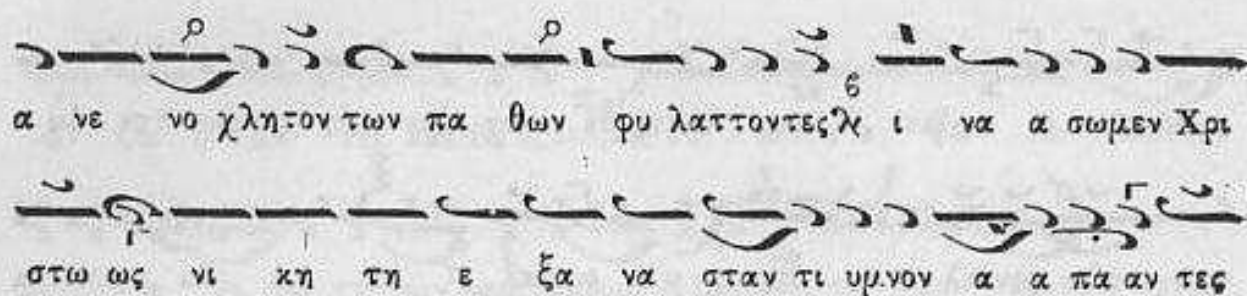 α νε νο χλητον των πα θων φυ λαττοντες ϗ ϐ ι να α σωμεν Χρι
στω ως νι κη τη ε ξα να σταν τι υμνον α α πα αν τες